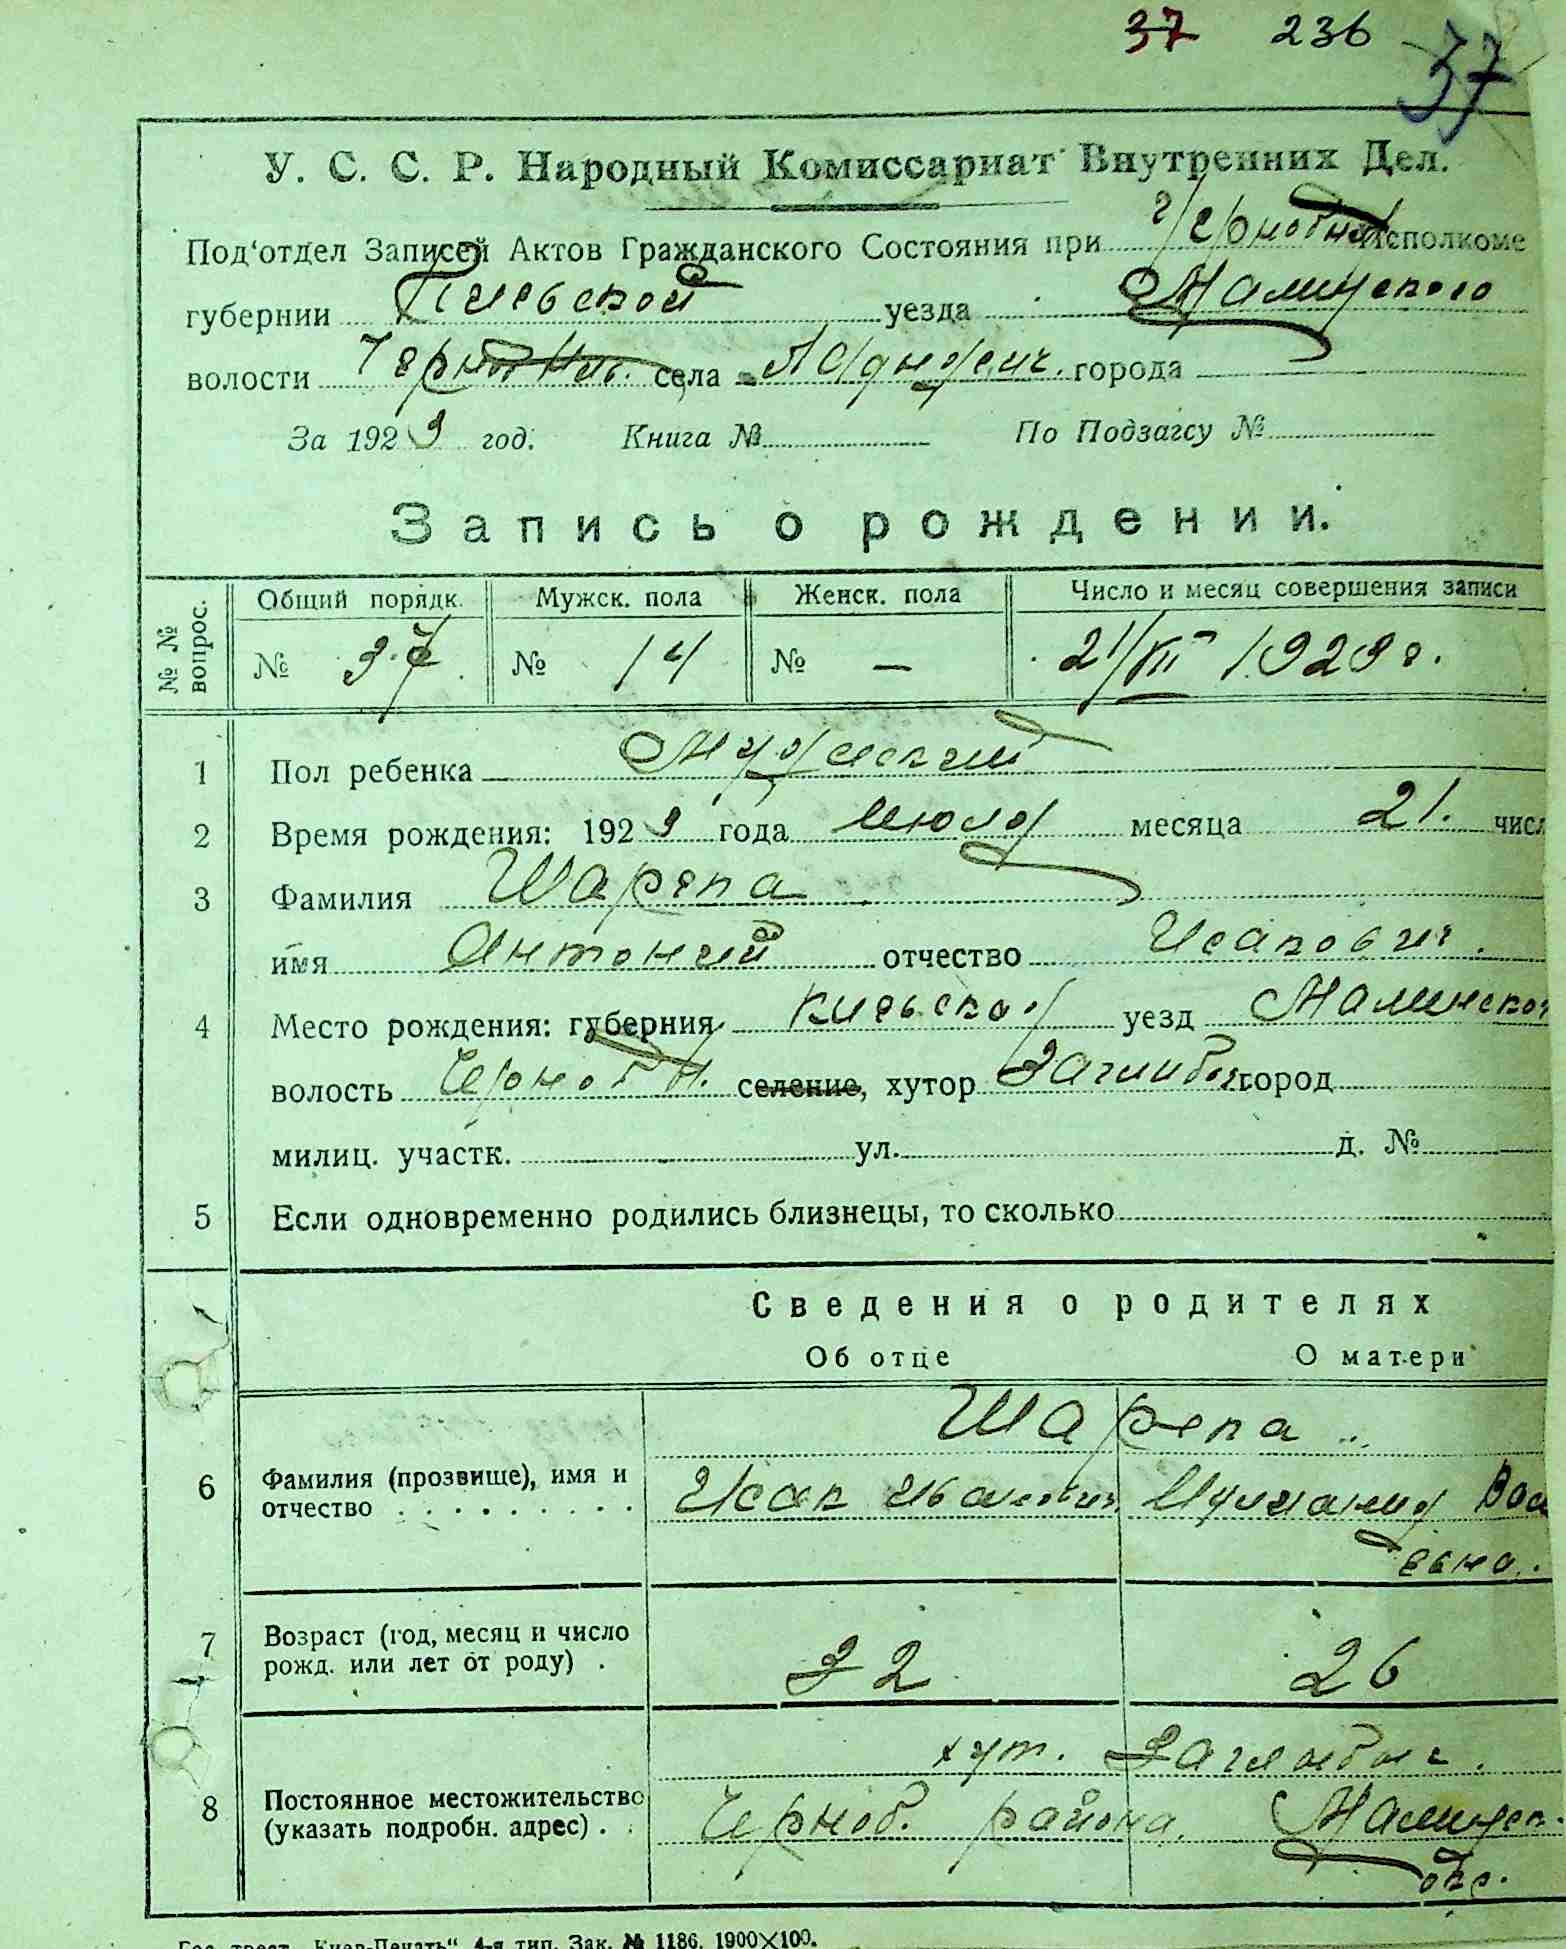 37 236 37
У. С. С. Р. Народный Комиссариат Внутренних Дел.
Под'отдел Записей Актов Гражданского Состояния при Исполкоме
губернии Киевской уезда
волости села города
За 1923 год. Книга № По Подзагсу №
Запись о рождении.
№ № вопрос. Общий порядк. Мужск. пола Женск. пола Число и месяц совершения записи
№ 37 № 14 № — 21/VII 1923 г.
1 Пол ребенка Мужеский
2 Время рождения: 1923 года Июля месяца 21. числ
3 Фамилия Шарепа
имя Антоний отчество Исакович.
4 Место рождения: губерния Киевская уезд
волость селение, хутор город
милиц. участк. ул. д. №
5 Если одновременно родились близнецы, то сколько
Сведения о родителях
Об отце О матери
Шарепа
6 Фамилия (прозвище), имя и Исак Иванович
отчество . . . . . . . . .
евна.
7 Возраст (год, месяц и число
рожд. или лет от роду) . 32 26
хут.
8 Постоянное местожительство Черноб. района,
(указать подробн. адрес) . .
окр.
Гос. трест „Киев-Печать“ 4-я тип. Зак. № 1186. 1900×100.